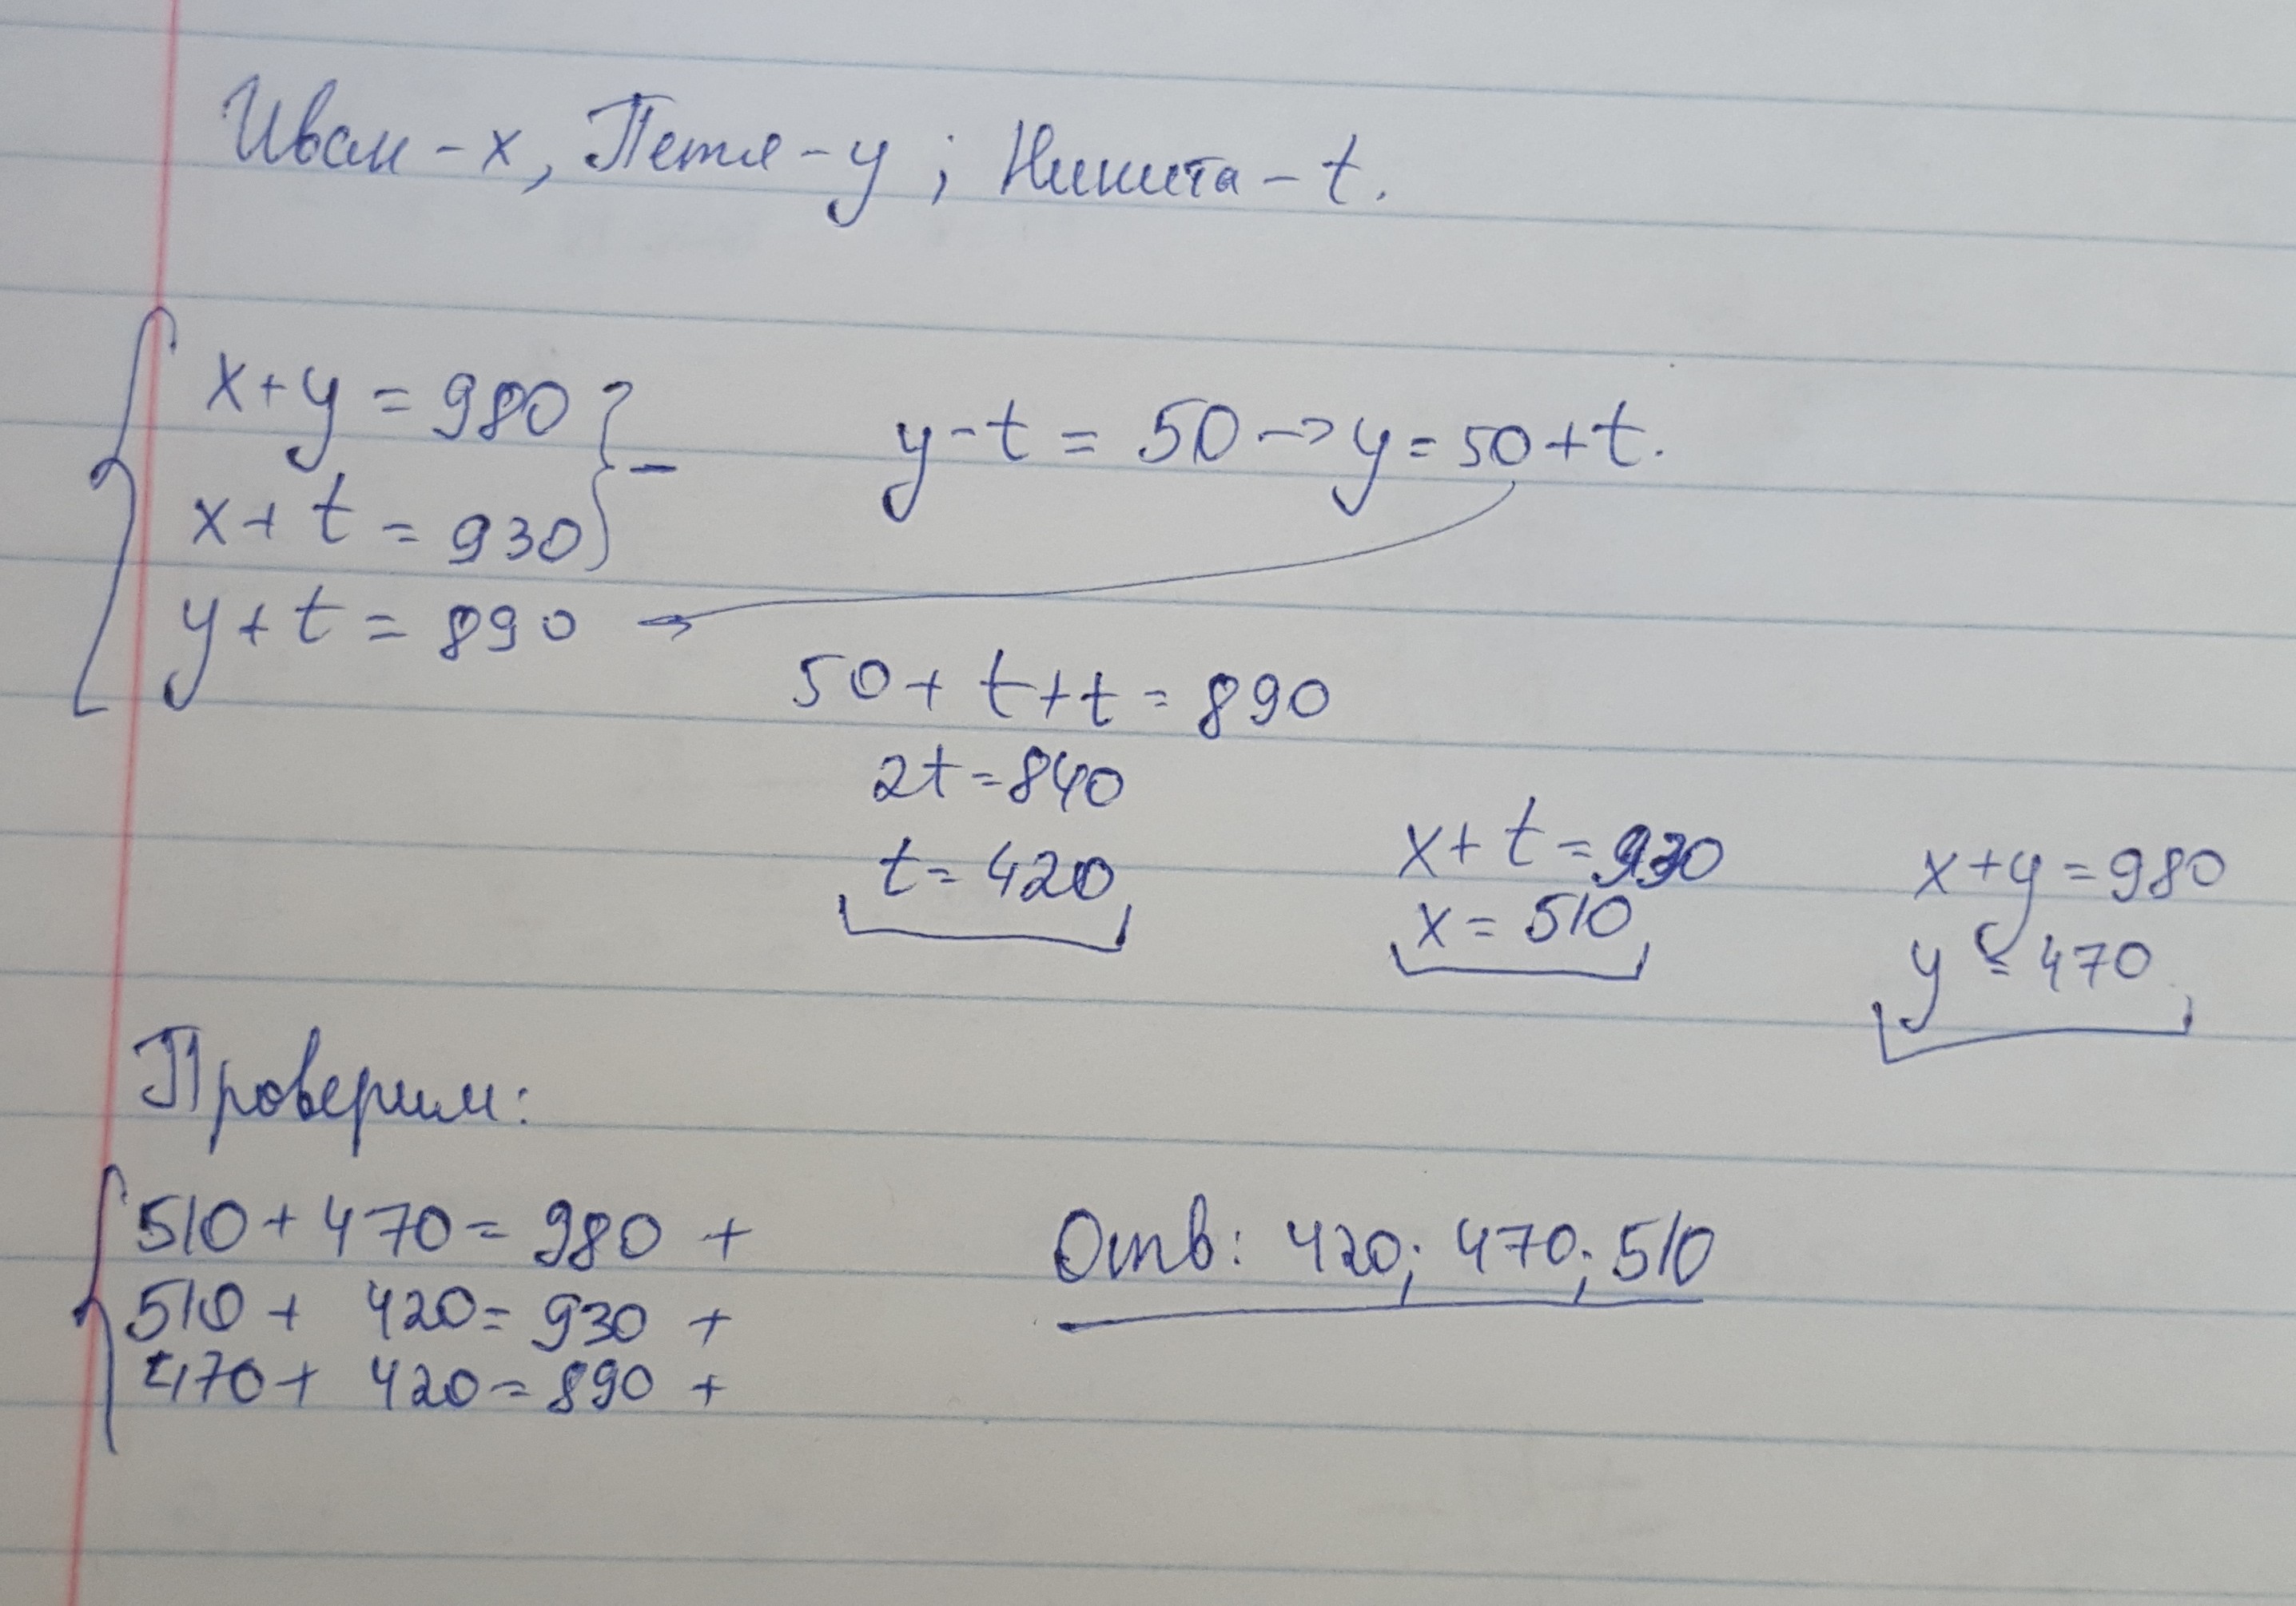 Иван - x, Петя - y; Никита - t.
x + y = 980
x + t = 930
y + t = 890
-
y - t = 50 -> y = 50 + t.
50 + t + t = 890
2t = 840
t = 420
x + t = 930
x = 510
x + y = 980
y = 470
Проверим:
510 + 470 = 980 +
510 + 420 = 930 +
470 + 420 = 890 +
Отв: 420; 470; 510